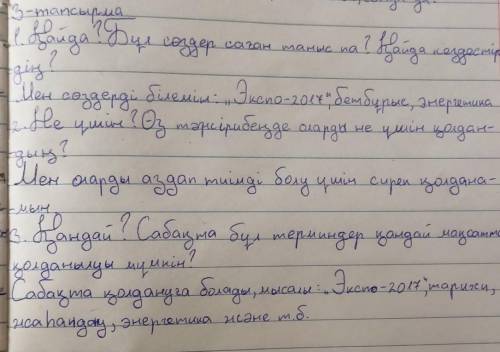 3-тапсырма
1. Қайда? Бұл сөздер саған таныс па? Қайда кездестір
дің?
Мен сөздерді білемін: „Экспо-2017", бетбұрыс, энергетика
2. Не үшін? Өз тәжірибеңде оларды не үшін қолдан-
дың?
Мен оларды аздап тиімді болу үшін сирек қолдана-
мын
3. Қандай? Сабақта бұл терминдер қандай мақсатта
қолданылуы мүмкін?
Сабақта қолдануға болады, мысалы: „Экспо-2017", тарихи,
жаһандану, энергетика және т.б.